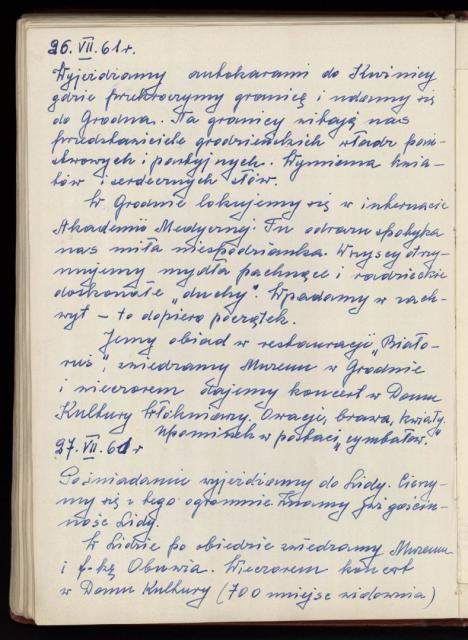 26. VII. 61 r.
Wyjeżdżamy autokarami do Kuźnicy
gdzie przekroczymy granicę i udamy się
do Grodna. Na granicy witają nas
przedstawiciele grodzieńskich władz pań-
stwowych i partyjnych. Wymiana kwia-
tów i serdecznych słów.
W Grodnie lokujemy się w internacie
Akademii Medycznej. Tu odrazu spotyka
nas miła niespodzianka. Wszyscy otrzy-
mujemy mydła pachnące i radzieckie
doskonałe „duchy". Wpadamy w zach-
wyt – to dopiero początek.
Jemy obiad w restauracji „Biało-
ruś", zwiedzamy Muzeum w Grodnie
i wieczorem dajemy koncert w Domu
Kultury Włókniarzy. Owacje, brawa, kwiaty.
Upominek w postaci „cymbałów."
27. VII. 61 r
Po śniadaniu wyjeżdżamy do Lidy. Cieszy-
my się z tego ogromnie. Znamy już gościn-
ność Lidy.
W Lidzie po obiedzie zwiedzamy Muzeum
i f-kę Obuwia. Wieczorem koncert
w Domu Kultury (700 miejsc widownia)